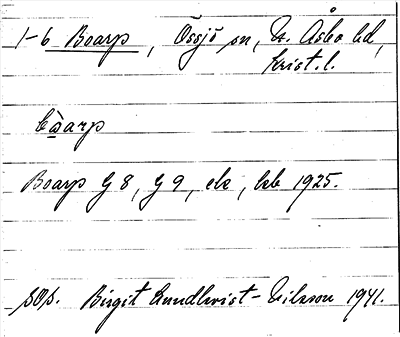 1-6 Boarp, Össjö sn, N. Åsbo hd,
Krist. l.
bòarp
Boarp G 8, G 9, ek, lzb 1925.
SOS. Birgit Lundkvist-Nilsson 1941.